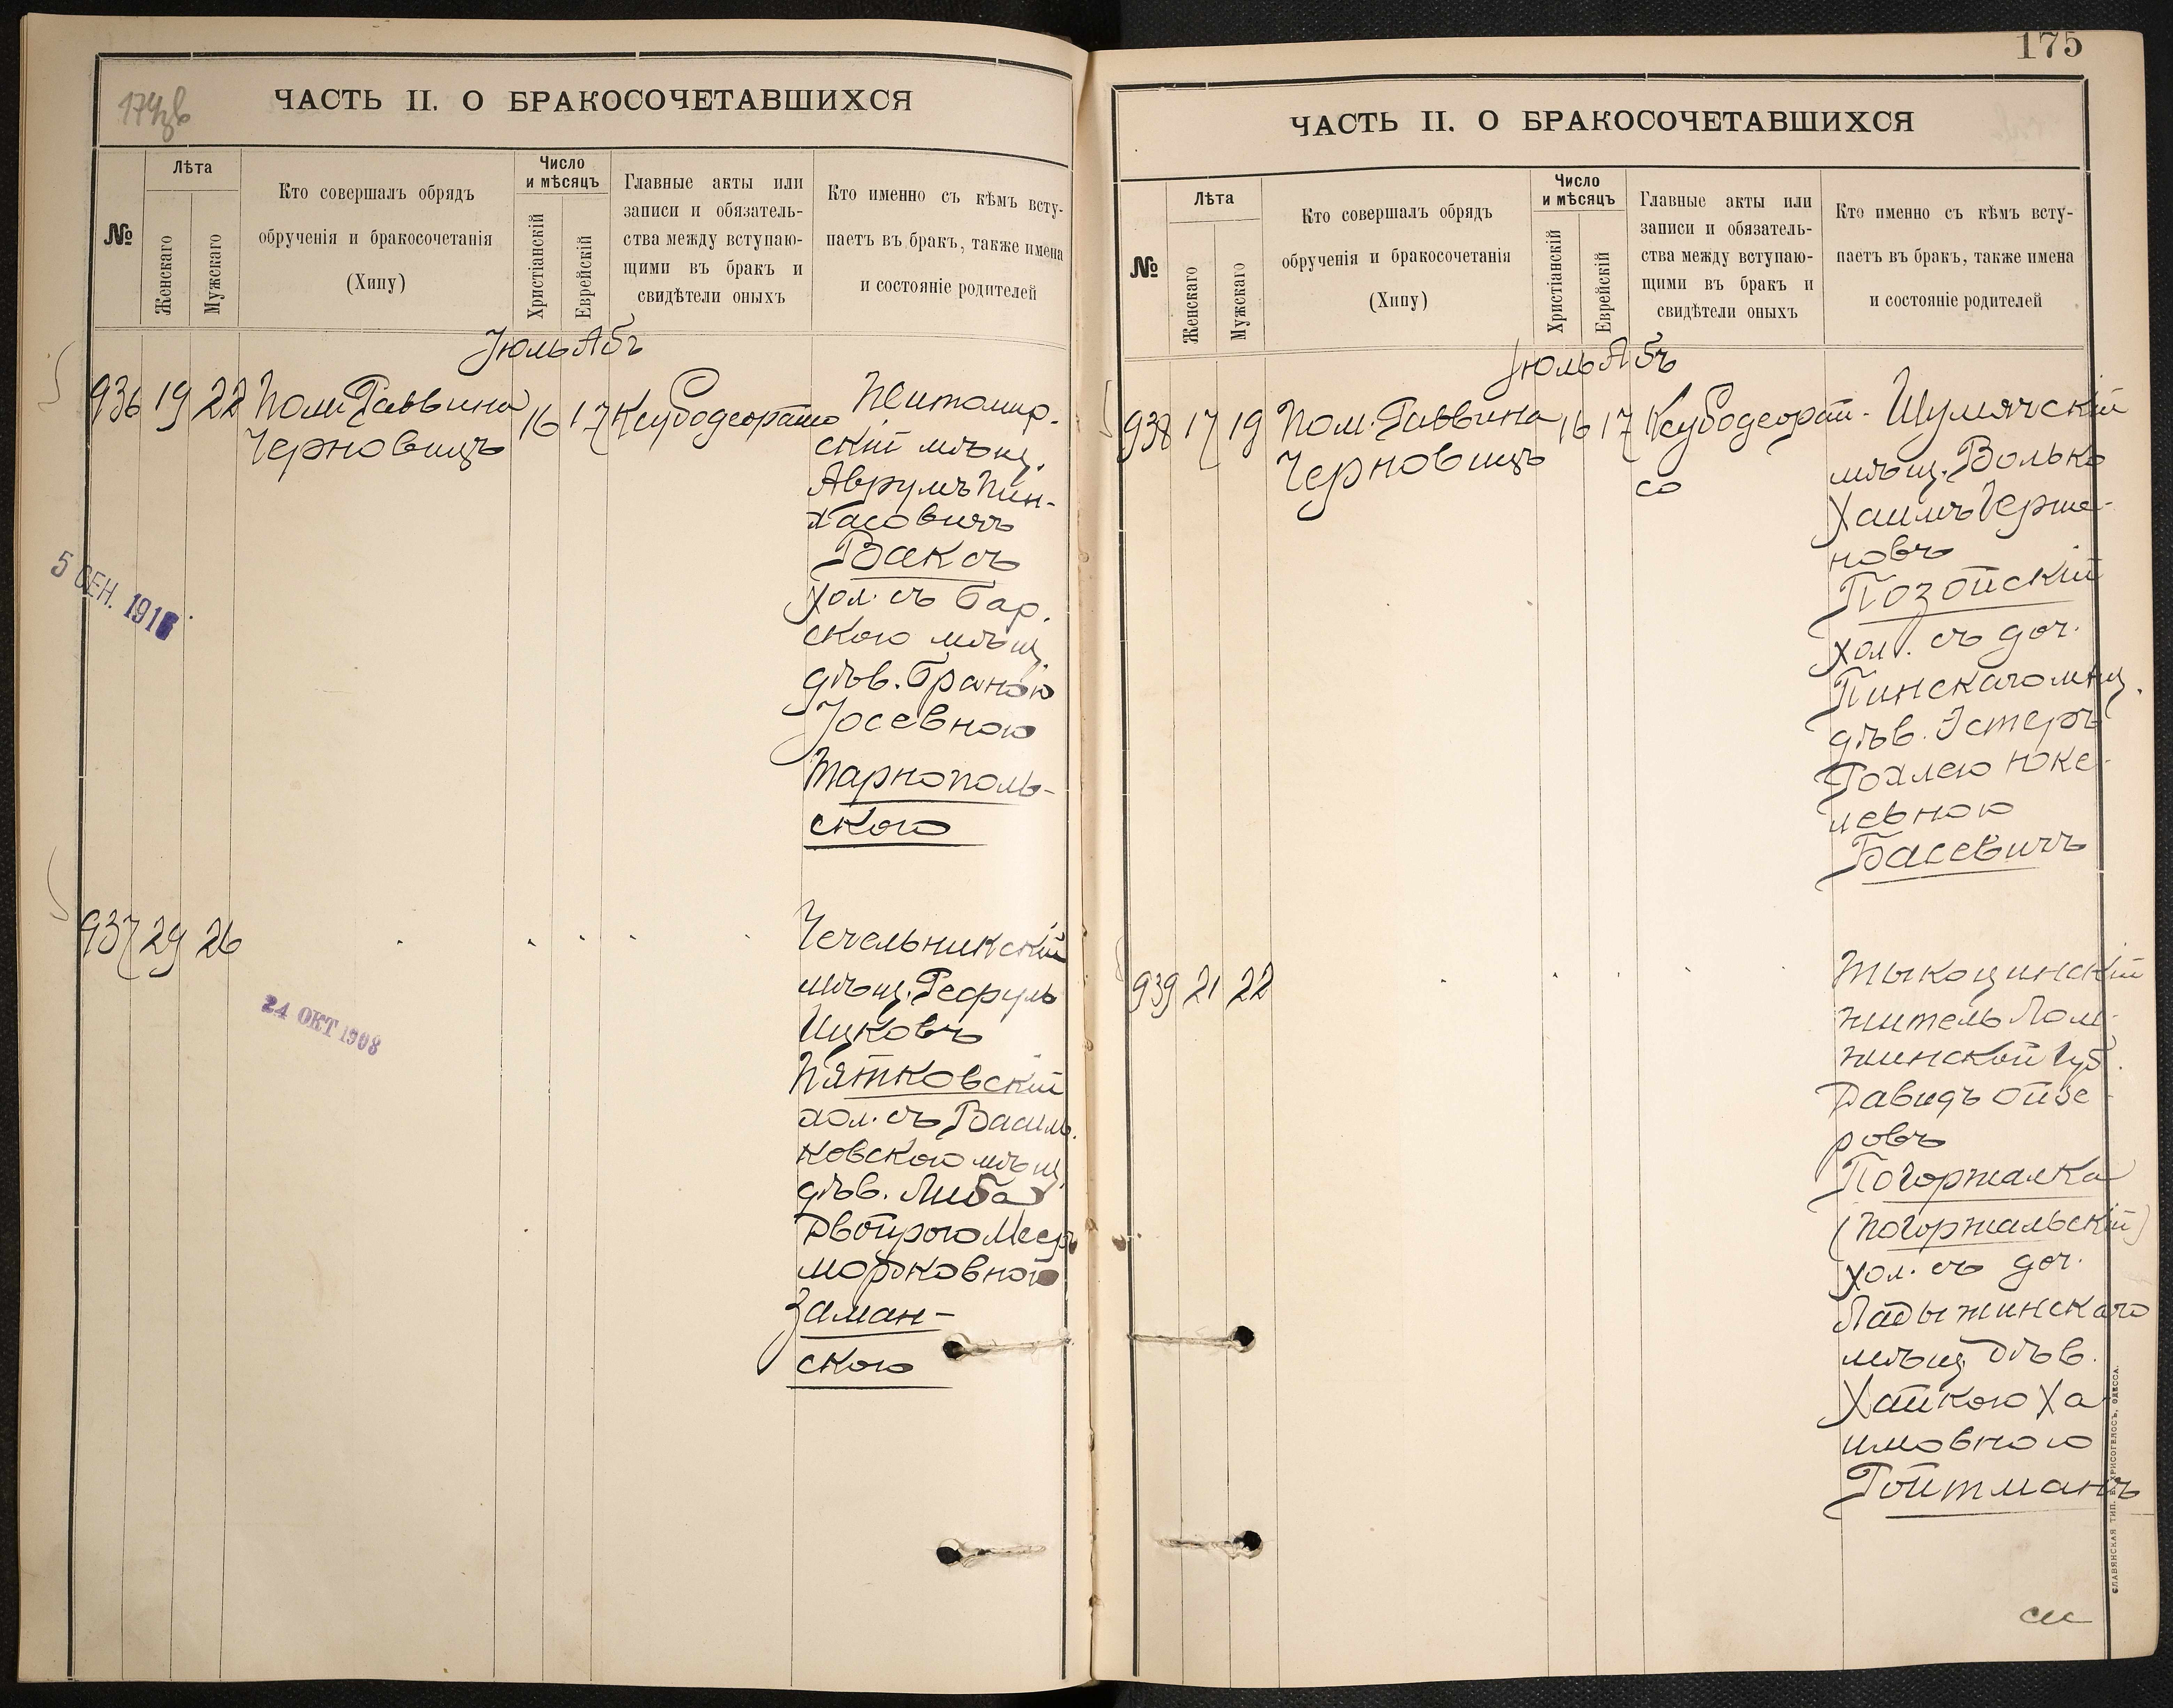 174зв
ЧАСТЬ II. О БРАКОСОЧЕТАВШИХСЯ
№
Лѣта
Женскаго
Мужскаго
Кто совершалъ обрядъ
обрученія и бракосочетанія
(Хипу)
Число
и мѣсяцъ
Христіанскій
Еврейскій
Главные акты или
записи и обязатель-
ства между вступаю-
щими въ бракъ и
свидѣтели оныхъ
Кто именно съ кѣмъ всту-
паетъ въ бракъ, также имена
и состояніе родителей
Іюль Абъ
936 19 22 Пом. Раввина 16 17 Ксубодеорайсо Житомир-
Черновицъ
скій мѣщ.
Аврумъ Пин-
хасовичъ
Ваксъ
хол. съ Бар.
скою мѣщ.
дѣв. Браною
Іосевною
Тарнополь-
скою
5 СЕН. 1916
937 29 26
Чечельникскій
мѣщ. Рефуль
Ицковъ
Пятковскій
хол. съ Василь.
ковскою мѣщ.
дѣв. Либа
Двойрою
Мордковною
Заман-
скою
24 ОКТ 1908
175
ЧАСТЬ II. О БРАКОСОЧЕТАВШИХСЯ
№
Лѣта
Женскаго
Мужскаго
Кто совершалъ обрядъ
обрученія и бракосочетанія
(Хипу)
Число
и мѣсяцъ
Христіанскій
Еврейскій
Главные акты или
записи и обязатель-
ства между вступаю-
щими въ бракъ и
свидѣтели оныхъ
Кто именно съ кѣмъ всту-
паетъ въ бракъ, также имена
и состояніе родителей
Іюль Абъ
938 17 19 Пом. Раввина 16 17 Ксубодеорай- Шумячскій
Черновицъ со
мѣщ. Волько
Хаимъ Герше-
новъ
Позойскій
хол. съ доч.
Пинскаго мѣщ.
дѣв. Эстеръ
Рохлею Юке-
левною
Басевичъ
939 21 22
Тыкоцинскій
житель Лом-
жинской губ.
Давидъ Ойзе-
ровъ
Погоржалка
(Погоржальскій)
хол. съ доч.
Ладыжинскаго
мѣщ. дѣв.
Хайкою Ха-
имовною
Ройтманъ
СЛАВЯНСКАЯ ТИП. Е. ХРИСОГЕЛОСЪ, ОДЕССА.